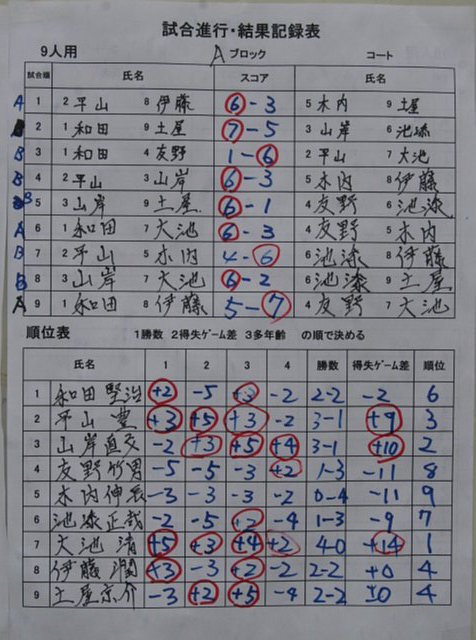 試合進行・結果記録表
9人用 A ブロック コート
試合順 氏名 スコア 氏名
A 1 2 平山 8 伊藤 6 - 3 5 木内 9 土屋
B 2 1 和田 9 土屋 7 - 5 3 山岸 6 池添
B 3 1 和田 4 友野 1 - 6 2 平山 7 大池
B 4 2 平山 3 山岸 6 - 3 5 木内 8 伊藤
B 5 3 山岸 9 土屋 6 - 1 4 友野 6 池添
A 6 1 和田 7 大池 6 - 3 4 友野 5 木内
B 7 2 平山 5 木内 4 - 6 6 池添 8 伊藤
B 8 3 山岸 7 大池 6 - 2 6 池添 9 土屋
A 9 1 和田 8 伊藤 5 - 7 4 友野 7 大池
順位表 1勝数 2得失ゲーム差 3多年齢 の順で決める
氏名 1 2 3 4 勝数 得失ゲーム差 順位
1 和田 堅治 +2 -5 +3 -2 2-2 -2 6
2 平山 豊 +3 +5 +3 -2 3-1 +9 3
3 山岸直文 -2 +3 +5 +4 3-1 +10 2
4 友野竹男 -5 -5 -3 +2 1-3 -11 8
5 木内伸 -3 -3 -3 -2 0-4 -11 9
6 池添正哉 -2 -5 +2 -4 1-3 -9 7
7 大池 清 +5 +3 +4 +2 4-0 +14 1
8 伊藤 潤 +3 -3 +2 -2 2-2 ±0 4
9 土屋京介 -3 +2 +5 -4 2-2 ±0 4